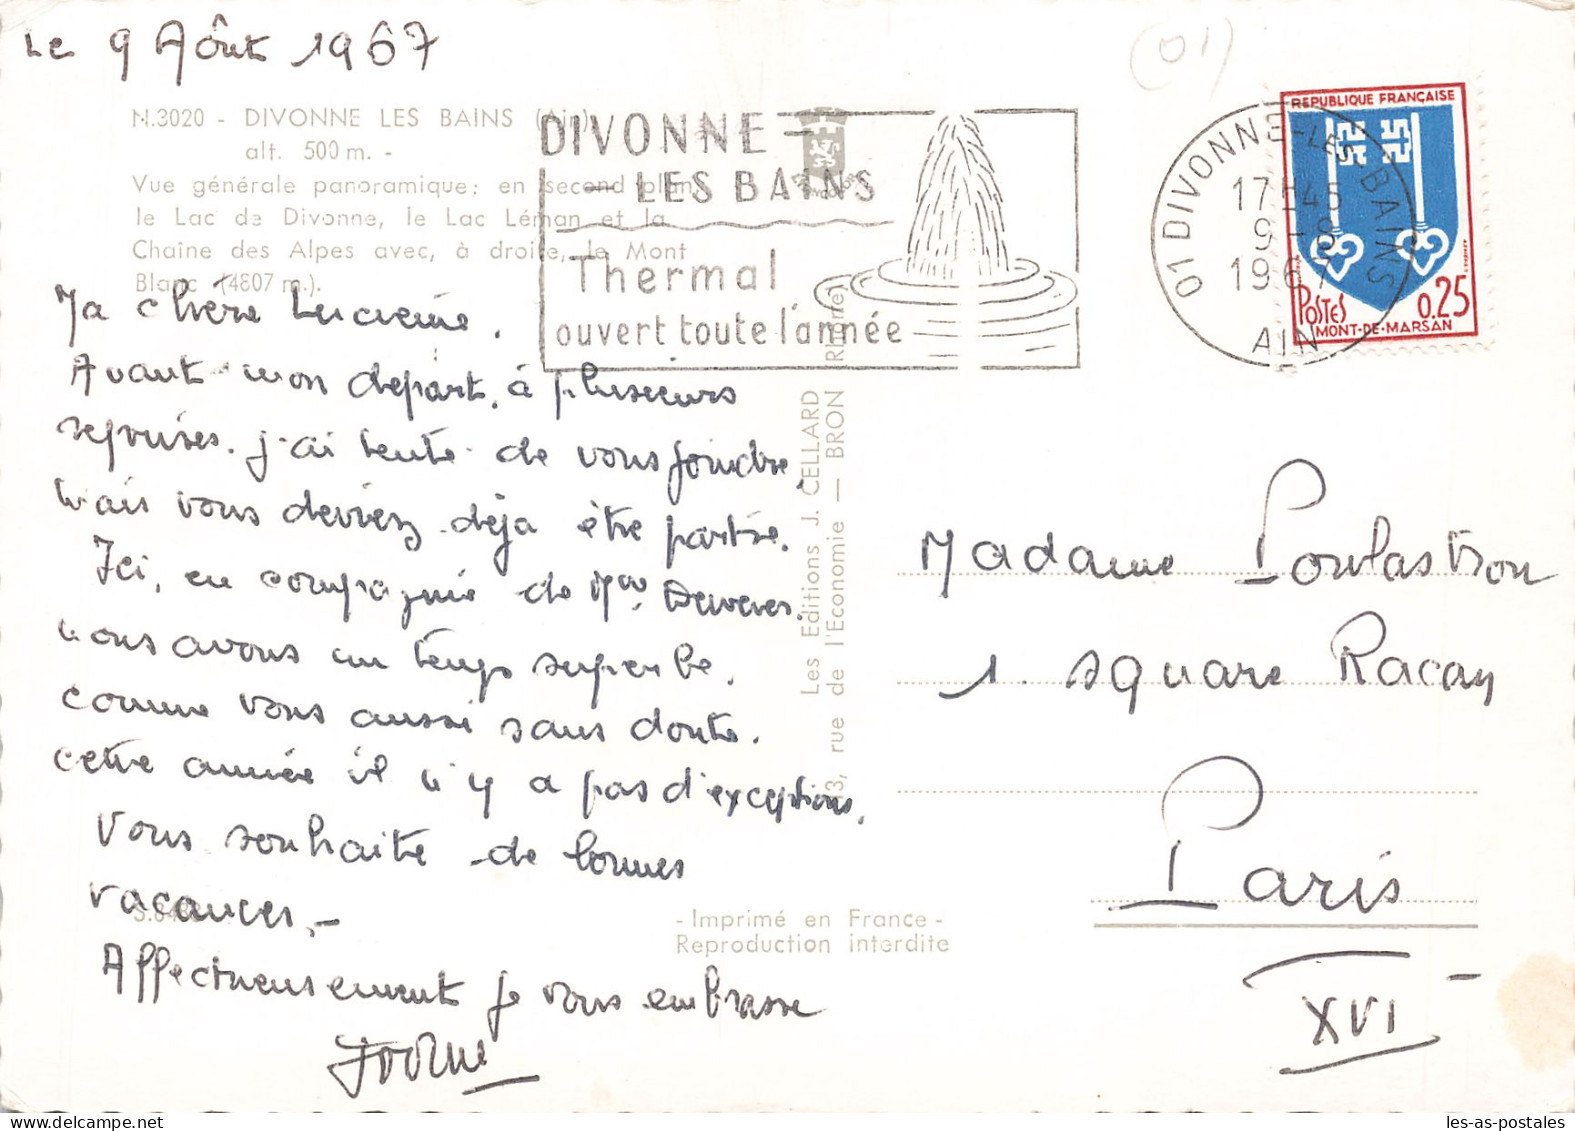 Le 9 Août 1967
N.3020 - DIVONNE LES BAINS (Ain)
alt. 500 m. -
Vue générale panoramique; en second plan,
le Lac de Divonne, le Lac Léman et la
Chaîne des Alpes avec, à droite, le Mont
Blanc (4807 m.).
DIVONNE-
-LES BAINS
Thermal
ouvert toute l'année
01 DIVONNE-LES-BAINS
17H45
9-8
1967
AIN
REPUBLIQUE FRANÇAISE
POSTES
0.25
MONT-DE-MARSAN
(01)
Ma chère
Avant mon départ, à plusieurs
reprises. j'ai tenté de vous joindre,
mais vous deviez déjà être partie.
Ici, en compagnie de Mme
nous avons un temps superbe,
comme vous aussi sans doute.
cette année il n'y a pas d'exceptions.
Vous souhaite de bonnes
vacances.-
Affectueusement je vous embrasse
Yvonne
Les Editions J. CELLARD
3, rue de l'Economie — BRON (Rhône)
- Imprimé en France -
Reproduction interdite
Madame Poulastron
1. square Racan
Paris
XVI
les-as-postales.com